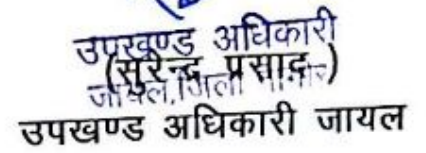 उपखण्ड अधिकारी
(सुरेन्द्र प्रसाद)
जायल, जिला
उपखण्ड अधिकारी जायल